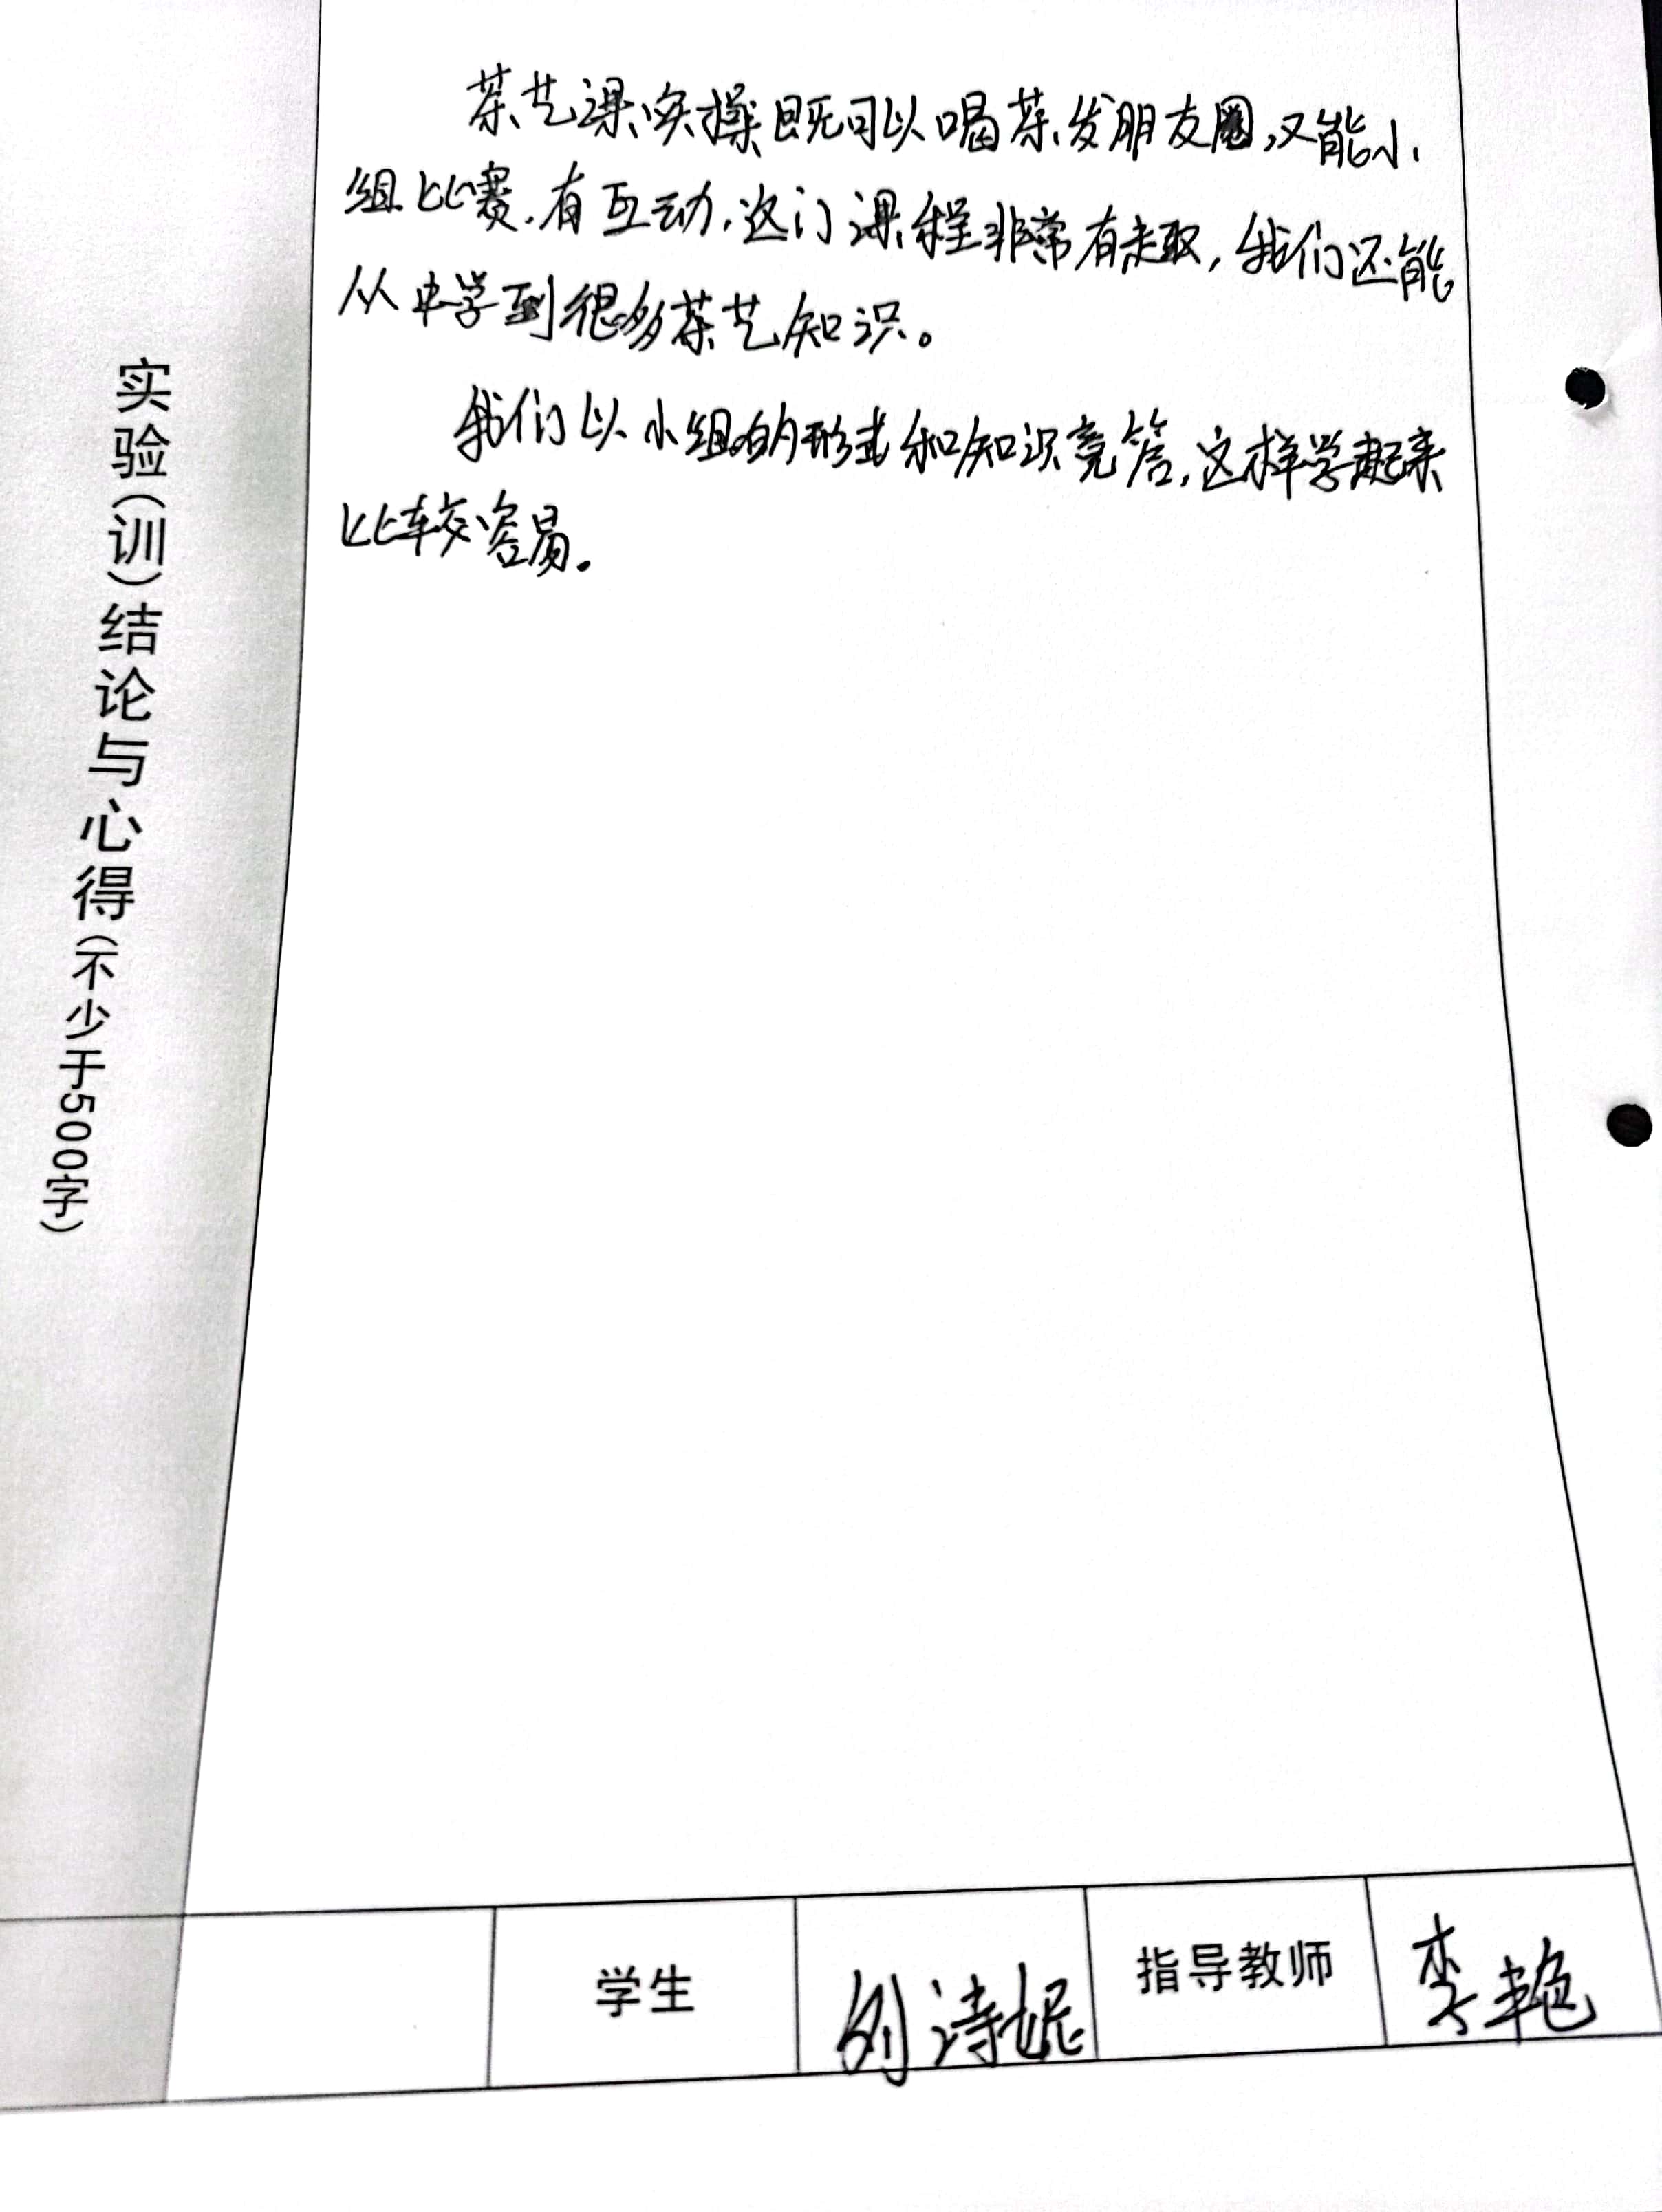 茶艺课实操既可以喝茶、发朋友圈,又能小
组比赛,有互动,这门课程非常有趣,我们还能
从中学到很多茶艺知识。
我们以小组的形式和知识竞答,这样学起来
比较容易。
实验(训)结论与心得(不少于500字)
学生 刘诗妮 指导教师 李艳